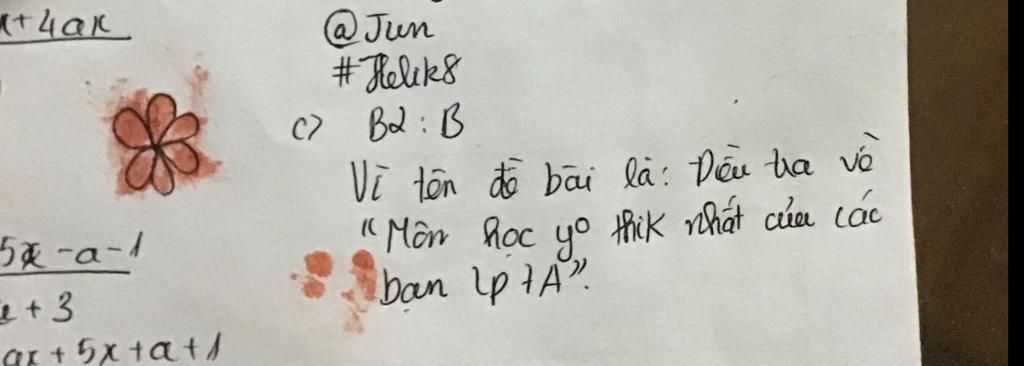 x+4ax
@Jun
#Helik8
c) B2: B
Vì tên đề bài là: Điều tra về
"Môn học yº thik nhất của các
bạn lp 7A".
5x-a-1
+3
ax+5x+a+1